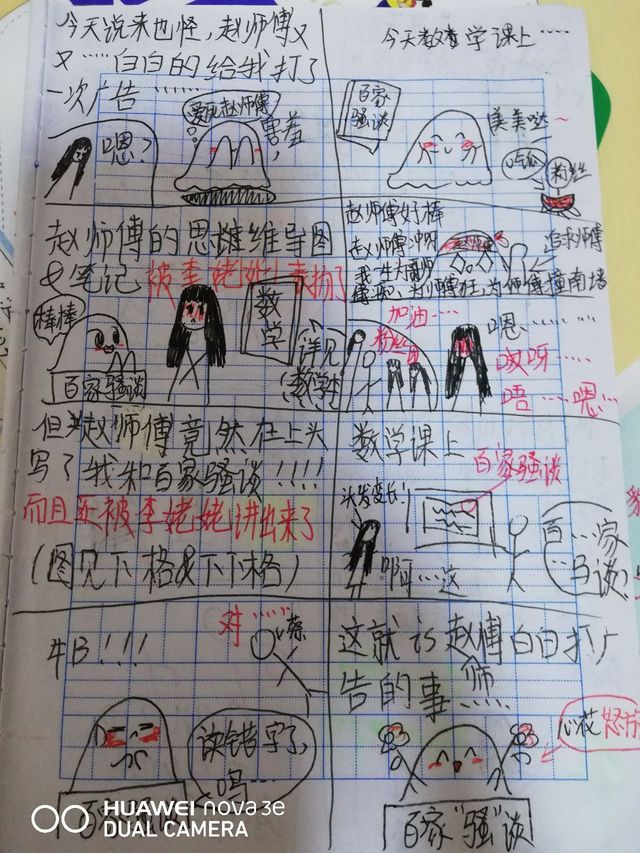 今天说来也怪，赵师傅又
又……白白的给我打了
一次广告……
爱死赵师傅
害羞
嗯？
今天数学课上……
百家
骚谈
美美哒~
吃瓜
粉丝
赵师傅的思维导图
&笔记被李姥姥表扬了
棒棒
百家骚谈
数学
详见
赵师傅好棒
赵师傅
追求师傅
为师傅撞南墙
加油……
粉丝
嗯……
哎呀……
唔……嗯…
但赵师傅竟然在上头
写了我和百家骚谈！！！！
而且还被李姥姥讲出来了
（图见下格&下下格）
数学课上
百家骚谈
头发变长！
啊……这
百……家
马谈？
牛B！！！
对……
读错字了，
吗……
百家
这就is赵师傅白白打广
告的事
心花怒放
百家“骚”谈
HUAWEI nova 3e
DUAL CAMERA